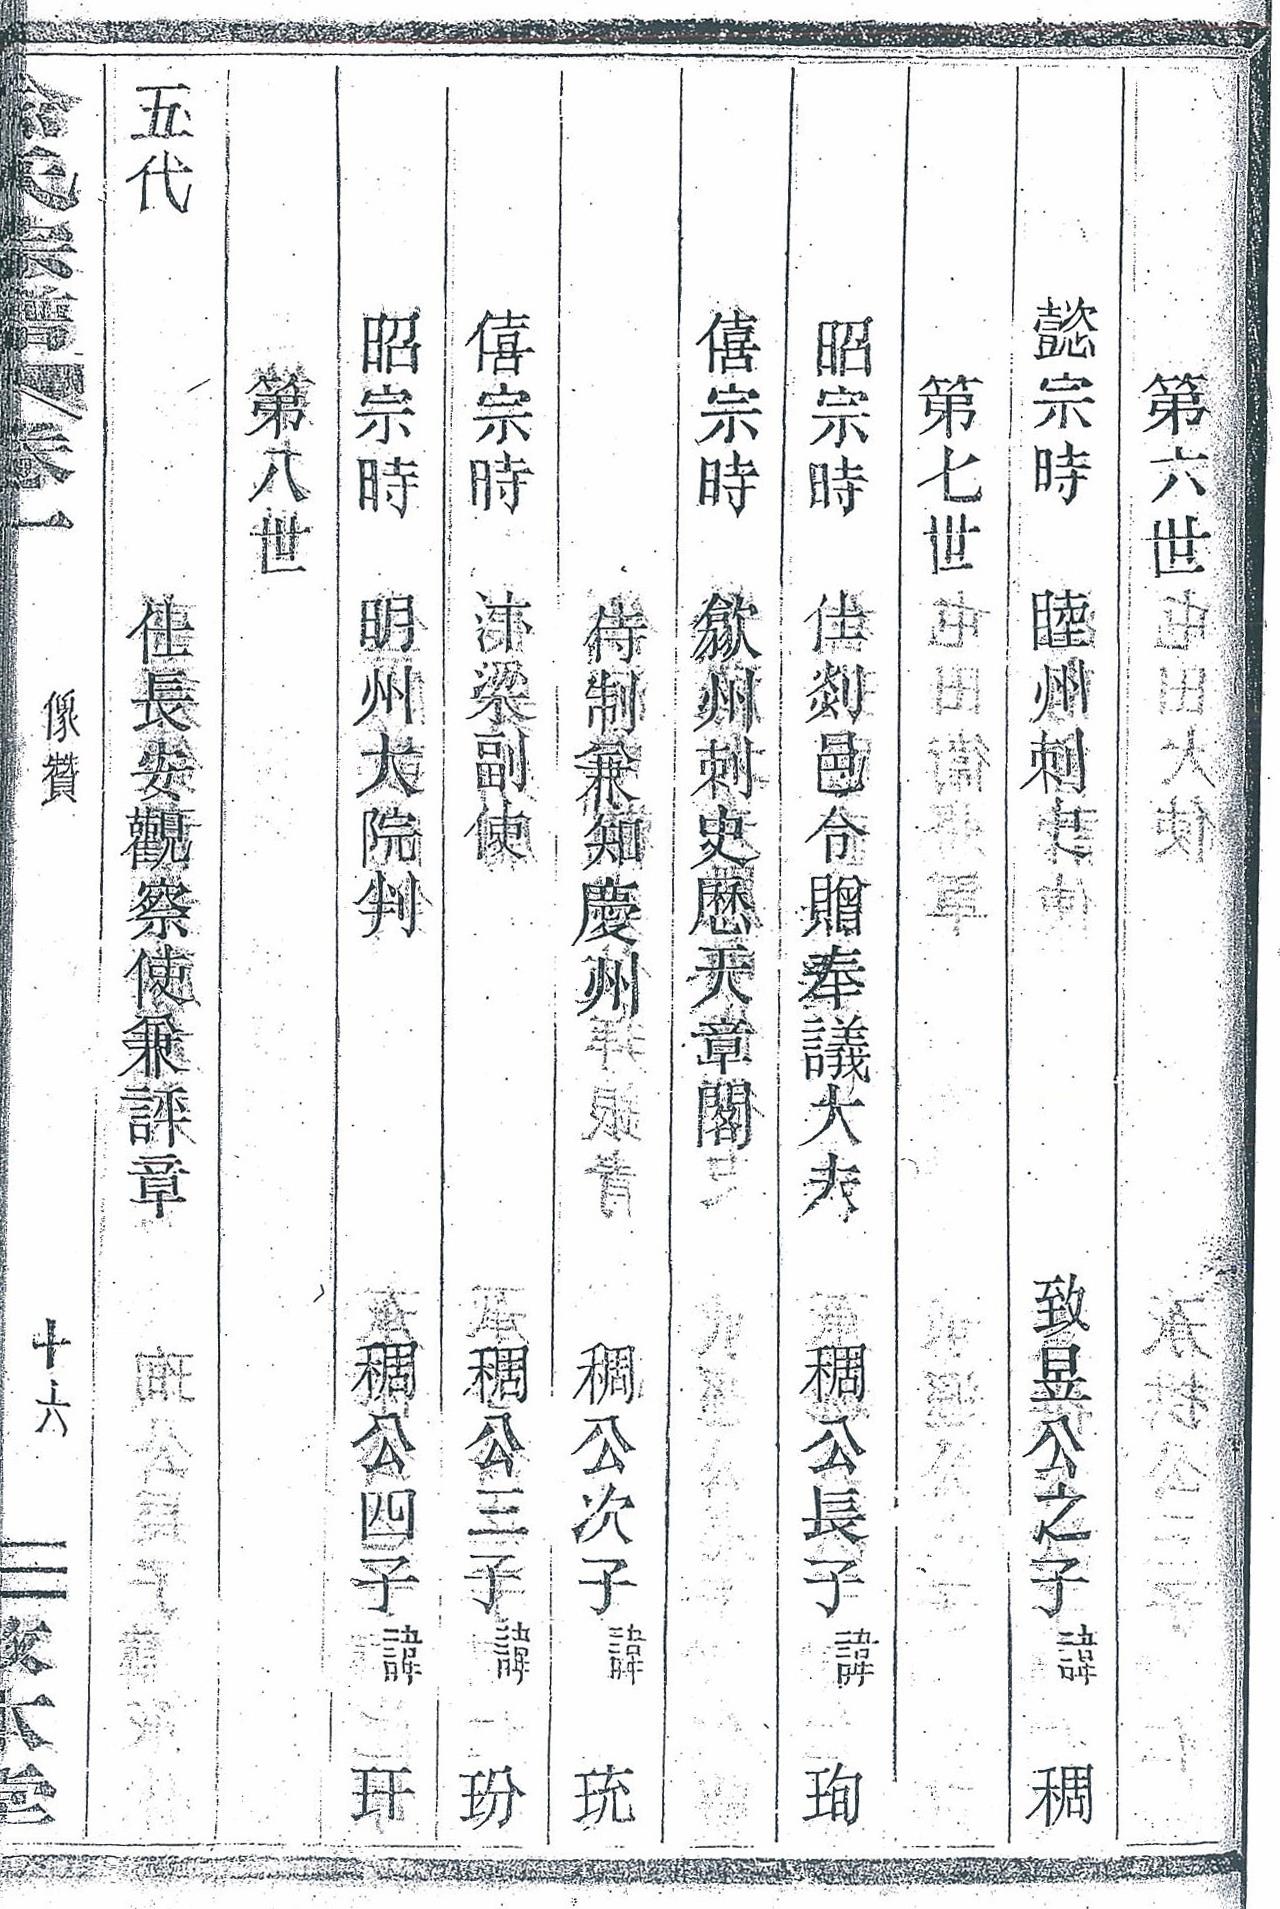 第六世
懿宗時 睦州刺史 致昱公之子 諱 稠
第七世
昭宗時 仕剡邑令贈奉議大夫 稠公長子 諱 珣
僖宗時 歙州刺史歷天章閣
待制兼知慶州 稠公次子 諱 珫
僖宗時 汴梁副使 稠公三子 諱 玢
昭宗時 明州大院判 稠公四子 諱 玕
第八世
五代 仕長安觀察使兼評章
氏宗譜 卷一 像贊 十六